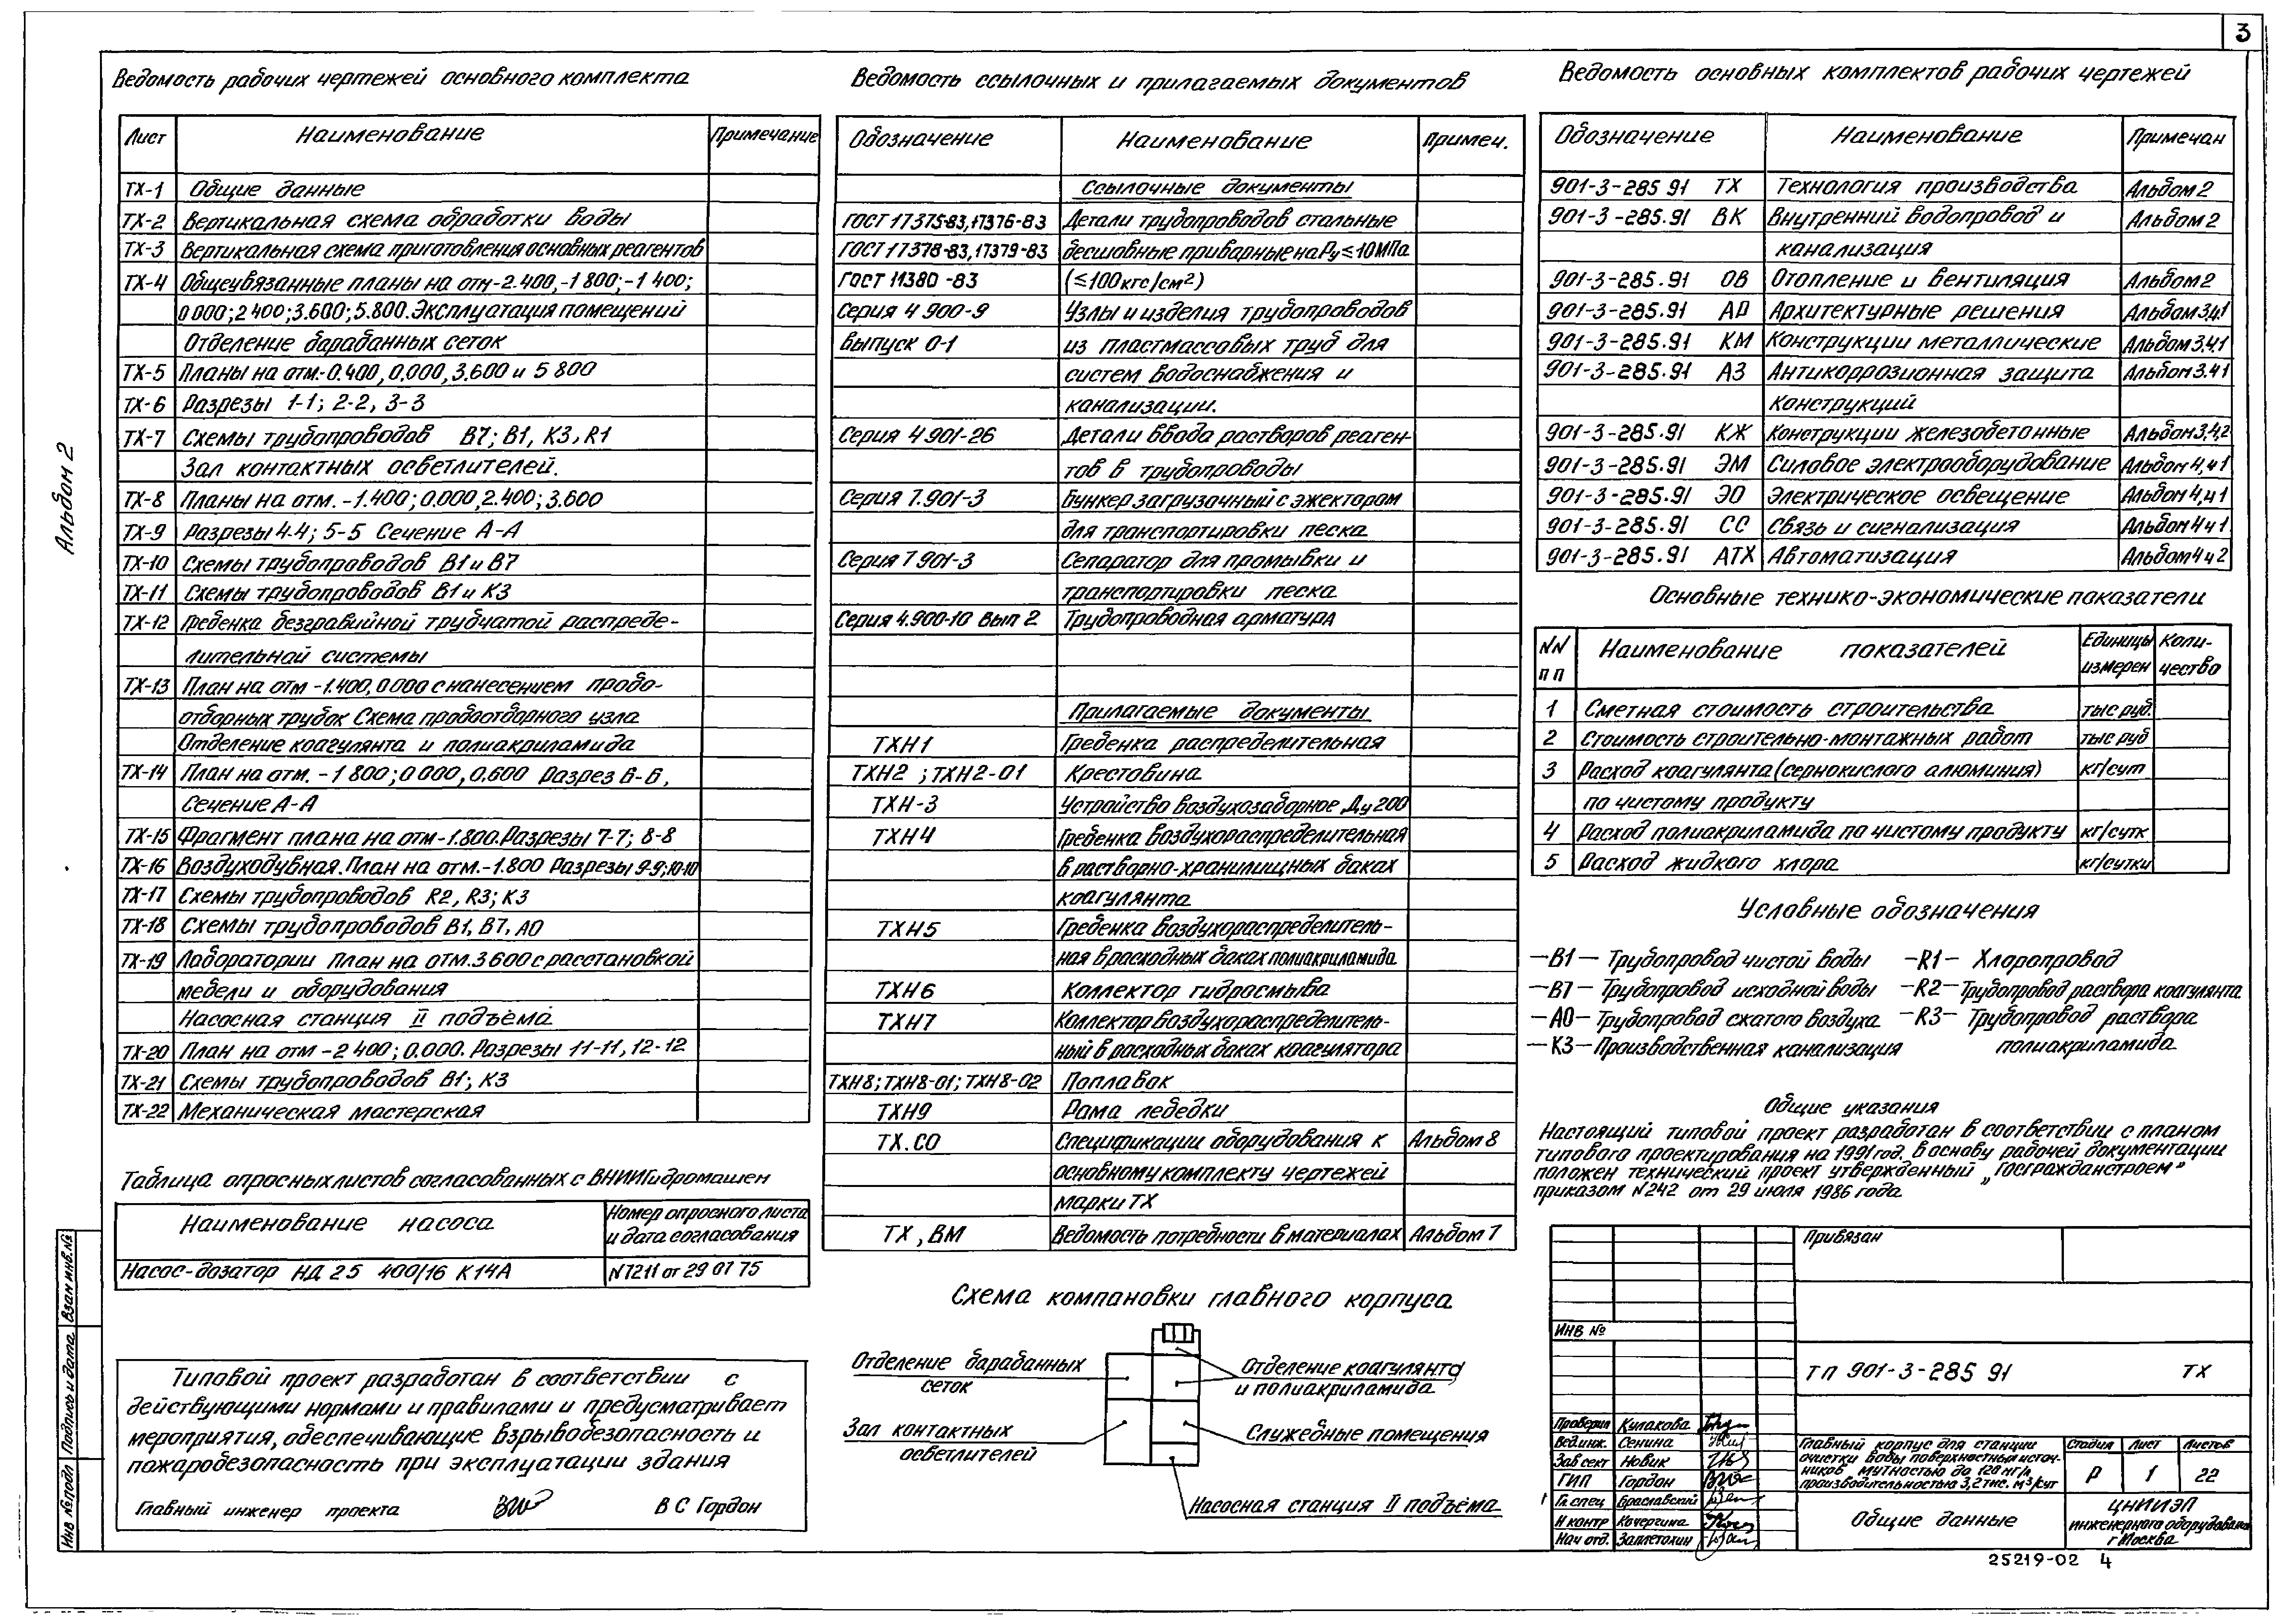 3
Альбом 2
Ведомость рабочих чертежей основного комплекта
Лист Наименование Примечание
ТХ-1 Общие данные
ТХ-2 Вертикальная схема обработки воды
ТХ-3 Вертикальная схема приготовления основных реагентов
ТХ-4 Общеувязанные планы на отм-2.400,-1 800;-1 400;
0 000; 2 400; 3.600; 5.800. Эксплуатация помещений
Отделение барабанных сеток
ТХ-5 Планы на отм.-0.400, 0.000, 3.600 и 5 800
ТХ-6 Разрезы 1-1; 2-2, 3-3
ТХ-7 Схемы трубопроводов В7; В1, К3, R1
Зал контактных осветлителей.
ТХ-8 Планы на отм. -1.400; 0.000, 2.400; 3.600
ТХ-9 Разрезы 4-4; 5-5 Сечение А-А
ТХ-10 Схемы трубопроводов В1 и В7
ТХ-11 Схемы трубопроводов В1 и К3
ТХ-12 Гребенка безгравийной трубчатой распреде-
лительной системы
ТХ-13 План на отм -1.400, 0 000 с нанесением пробо-
отборных трубок Схема пробоотборного узла
Отделение коагулянта и полиакриламида
ТХ-14 План на отм. -1 800; 0 000, 0.600 Разрез 6-6,
Сечение А-А
ТХ-15 Фрагмент плана на отм-1.800. Разрезы 7-7; 8-8
ТХ-16 Воздуходувная. План на отм.-1.800 Разрезы 9-9; 10-10
ТХ-17 Схемы трубопроводов R2, R3; К3
ТХ-18 Схемы трубопроводов В1, В7, А0
ТХ-19 Лаборатории План на отм. 3 600 с расстановкой
мебели и оборудования
Насосная станция II подъёма
ТХ-20 План на отм -2 400; 0.000. Разрезы 11-11, 12-12
ТХ-21 Схемы трубопроводов В1; К3
ТХ-22 Механическая мастерская
Таблица опросных листов согласованных с ВНИИГидромашен
Наименование насоса Номер опросного листа
и дата согласования
Насос-дозатор НД 2 5 400/16 К14А N7211 от 29 07 75
Типовой проект разработан в соответствии с
действующими нормами и правилами и предусматривает
мероприятия, обеспечивающие взрывобезопасность и
пожаробезопасность при эксплуатации здания
Главный инженер проекта В С Гордон
Ведомость ссылочных и прилагаемых документов
Обозначение Наименование Примеч.
Ссылочные документы
ГОСТ 17375-83, 17376-83 Детали трубопроводов стальные
ГОСТ 17378-83, 17379-83 бесшовные приварные на Ру ≤ 10 МПа
ГОСТ 11380 -83 (≤100 кгс/см²)
Серия 4 900-9 Узлы и изделия трубопроводов
выпуск 0-1 из пластмассовых труб для
систем водоснабжения и
канализации.
Серия 4 901-26 Детали ввода растворов реаген-
тов в трубопроводы
Серия 7.901-3 Бункер загрузочный с эжектором
для транспортировки песка
Серия 7 901-3 Сепаратор для промывки и
транспортировки песка
Серия 4.900-10 Вып 2 Трубопроводная арматура
Прилагаемые документы
ТХН1 Гребенка распределительная
ТХН2 ; ТХН2-01 Крестовина
ТХН-3 Устройство воздухозаборное Ду 200
ТХН4 Гребенка воздухораспределительная
в растворно-хранилищных баках
коагулянта
ТХН5 Гребенка воздухораспределитель-
ная в расходных баках полиакриламида
ТХН6 Коллектор гидросмыва
ТХН7 Коллектор воздухораспределитель-
ный в расходных баках коагулятора
ТХН8; ТХН8-01; ТХН8-02 Поплавок
ТХН9 Рама лебедки
ТХ.СО Спецификации оборудования к Альбом 8
основному комплекту чертежей
марки ТХ
ТХ, ВМ Ведомость потребности в материалах Альбом 7
Схема компановки главного корпуса
Отделение барабанных
сеток
Зал контактных
осветлителей
Отделение коагулянта
и полиакриламида
Служебные помещения
Насосная станция II подъёма
Ведомость основных комплектов рабочих чертежей
Обозначение Наименование Примечан
901-3-285 91 ТХ Технология производства Альбом 2
901-3-285.91 ВК Внутренний водопровод и Альбом 2
канализация
901-3-285.91 ОВ Отопление и вентиляция Альбом 2
901-3-285.91 АР Архитектурные решения Альбом 3,4.1
901-3-285.91 КМ Конструкции металлические Альбом 3,4.1
901-3-285.91 АЗ Антикоррозионная защита Альбом 3.4.1
Конструкций
901-3-285.91 КЖ Конструкции железобетонные Альбом 3,4,2
901-3-285.91 ЭМ Силовое электрооборудование Альбом 4,ч 1
901-3-285.91 ЭО Электрическое освещение Альбом 4,ч 1
901-3-285.91 СС Связь и сигнализация Альбом 4 ч 1
901-3-285.91 АТХ Автоматизация Альбом 4 ч 2
Основные технико-экономические показатели
NN
п п Наименование показателей Единицы
измерен Коли-
чество
1 Сметная стоимость строительства тыс руб.
2 Стоимость строительно-монтажных работ тыс руб
3 Расход коагулянта (сернокислого алюминия) кг/сут
по чистому продукту
4 Расход полиакриламида по чистому продукту кг/сутк
5 Расход жидкого хлора кг/сутки
Условные обозначения
—В1— Трубопровод чистой воды —R1— Хлоропровод
—В7— Трубопровод исходной воды —R2— Трубопровод раствора коагулянта
—А0— Трубопровод сжатого воздуха —R3— Трубопровод раствора
—К3— Производственная канализация полиакриламида
Общие указания
Настоящий типовой проект разработан в соответствии с планом
типового проектирования на 1991 год. В основу рабочей документации
положен технический проект утвержденный „Госгражданстроем"
приказом N242 от 29 июля 1986 года
Привязан
ИНВ №
ТП 901-3-285 91 ТХ
Проверил Кулакова
Вед.инж. Сенина
Зав сект Новик
ГИП Гордон
Гл. спец Браславский
Н контр Кочергина
Нач отд.
Главный корпус для станции
очистки воды поверхностных источ-
ников мутностью до 120 мг/л
производительностью 3,2 тыс. м³/сут
Стадия Лист Листов
Р 1 22
Общие данные
ЦНИИЭП
инженерного оборудования
г Москва
25219-02 4
Инв № подл Подпись и дата Взам инв.№